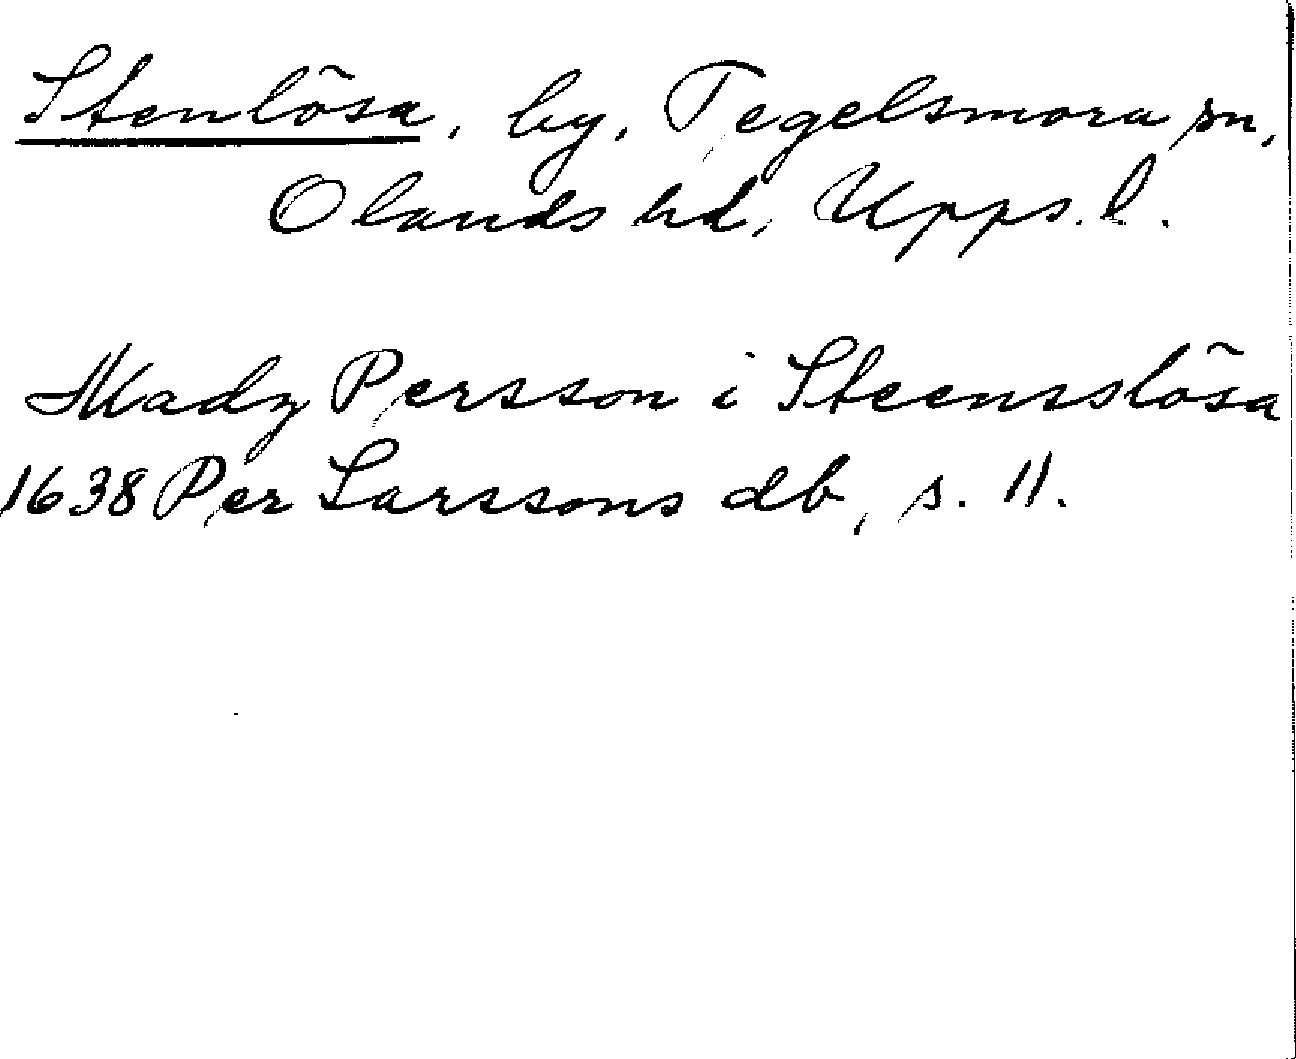 Stenlösa, by, Tegelsmora sn,
Olands hd, Upps. l.
Madz Persson i Steensslösa
1638 Per Larssons db, s. 11.